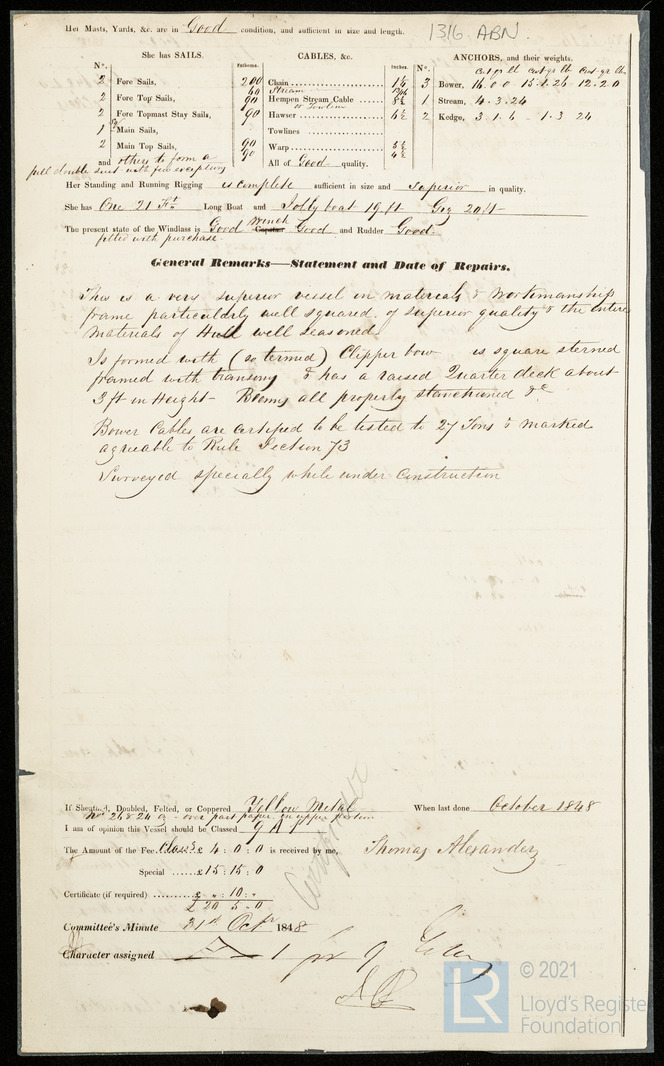 1316. ABN.
Her Masts, Yards, &c. are in Good condition, and sufficient in size and length.
She has SAILS.
CABLES, &c.
ANCHORS, and their weights.
N°.
Fathoms.
Inches.
N°.
2 Fore Sails,
200 Chain
3 Bower, 16.0.0
2 Fore Top Sails,
60 Stream
90 Hempen Stream Cable 8½
1 Stream, 4.3.24
2 Fore Topmast Stay Sails,
90 Hawser 6½
2 Kedge, 3.1.6 1.3.24
1 Main Sails,
Towlines
2 Main Top Sails,
90 Warp 5½
and others to form a
90 4½
full double suit with few exceptions
All of Good quality.
Her Standing and Running Rigging is complete sufficient in size and Superior in quality.
She has One 21 Ft Long Boat and Jolly boat 19 ft Gig 20 ft
The present state of the Windlass is Good Winch Capstan Good and Rudder Good.
fitted with purchase
General Remarks—Statement and Date of Repairs.
This is a very superior vessel in materials & Workmanship
frame particularly well squared of superior quality & the entire
materials of Hull well seasoned
Is formed with (so termed) Clipper bow is square sterned
framed with transoms & has a raised Quarter deck about
3 ft in Height - Beams all properly stanchioned &c
Bower Cables are certified to be tested to 27 Tons & marked
agreable to Rule Section 73
Surveyed specially while under Construction
If Sheathed, Doubled, Felted, or Coppered Yellow Metal When last done October 1848
No 26 & 24 oz - over part paper on upper portion
I am of opinion this Vessel should be Classed 9 A 1
The Amount of the Fee Class £ 4 : 0 : 0 is received by me, Thomas Alexander
Special £15 : 15 : 0
Certificate (if required) £ " : 10 : "
£ 20 5 - 0
Committee's Minute 31st Octr 1848
Character assigned A 1 for 9
© 2021
LR
Lloyd's Register
Foundation